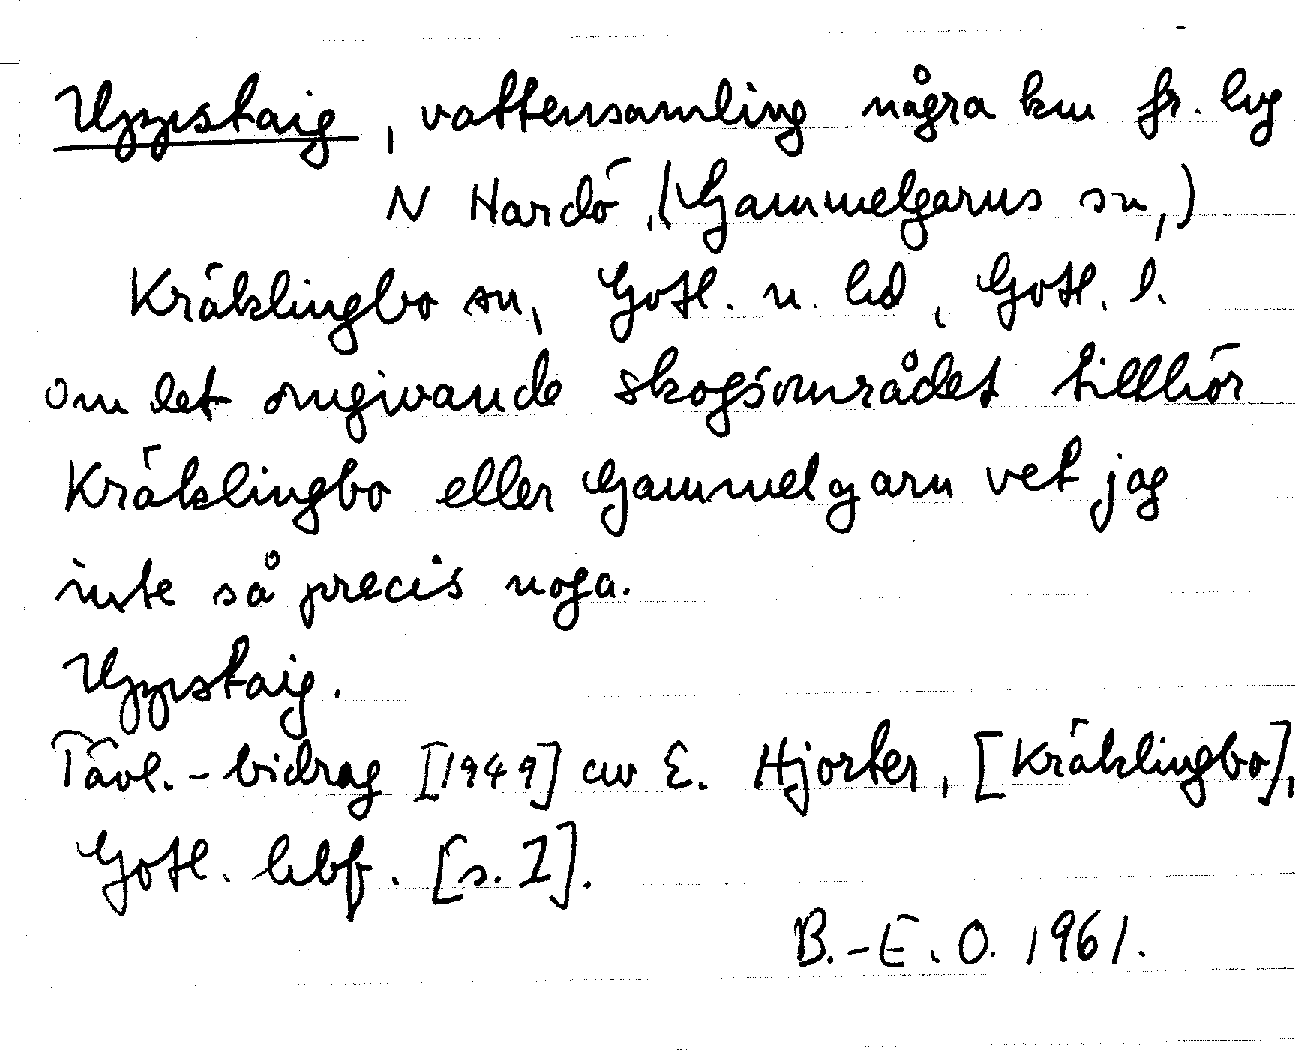 Uppstaig, vattensamling några km fr. lvg
N Hardö, (Gammelgarns sn,)
Kräklingbo sn, Gotl. n. hd, Gotl. l.
Om det omgivande skogsområdet tillhör
Kräklingbo eller Gammelgarn vet jag
inte så precis noga.
Uppstaig.
Tävl.-bidrag [1949] av E. Hjorter, [Kräklingbo],
Gotl. hbf. [s. I].
B.-E. O. 1961.